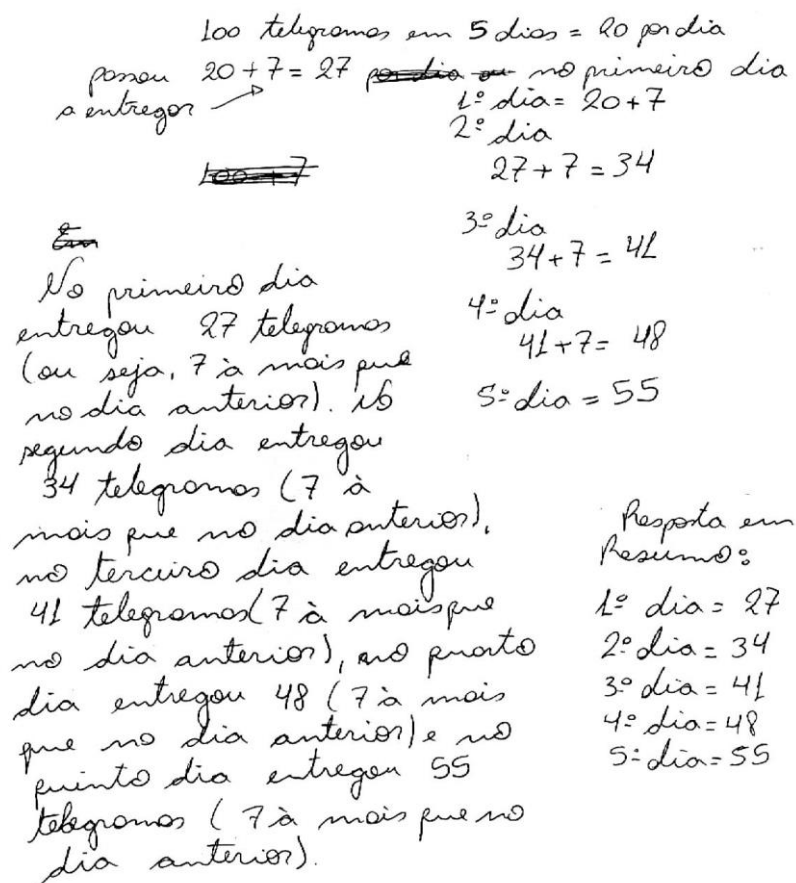 100 telegramas em 5 dias = 20 por dia
passou 20 + 7 = 27 por dia ou no primeiro dia
a entregar
1º dia = 20+7
2º dia
27 + 7 = 34
100 + 7
3º dia
34+7 = 41
4º dia
41+7 = 48
5º dia = 55
Em
No primeiro dia
entregou 27 telegramas
(ou seja, 7 à mais que
no dia anterior). No
segundo dia entregou
34 telegramas (7 à
mais que no dia anterior),
no terceiro dia entregou
41 telegramas (7 à mais que
no dia anterior), no quarto
dia entregou 48 (7 à mais
que no dia anterior) e no
quinto dia entregou 55
telegramas (7 à mais que no
dia anterior).
Resposta em
Resumo:
1º dia = 27
2º dia = 34
3º dia = 41
4º dia = 48
5º dia = 55